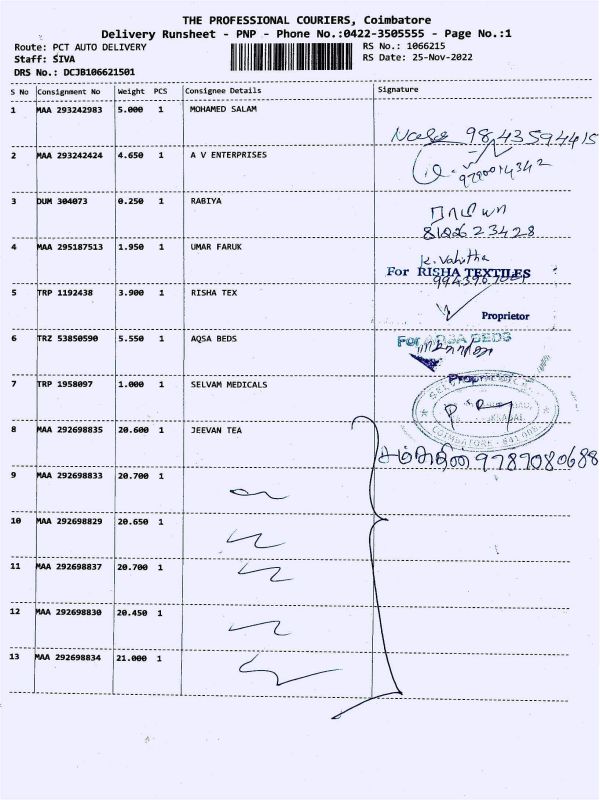 THE PROFESSIONAL COURIERS, Coimbatore
Delivery Runsheet - PNP - Phone No.:0422-3505555 - Page No.:1
Route: PCT AUTO DELIVERY
RS No.: 1066215
Staff: SIVA
RS Date: 25-Nov-2022
DRS No.: DCJB106621501
S No Consignment No Weight PCS Consignee Details Signature
1 MAA 293242983 5.000 1 MOHAMED SALAM
9843594415
2 MAA 293242424 4.650 1 A V ENTERPRISES
3 DUM 304073 0.250 1 RABIYA
ராபியா
8122623428
4 MAA 295187513 1.950 1 UMAR FARUK
K. Vahitha
For RISHA TEXTILES
5 TRP 1192438 3.900 1 RISHA TEX
Proprietor
6 TRZ 53850590 5.550 1 AQSA BEDS
For AQSA BEDS
7 TRP 1958097 1.000 1 SELVAM MEDICALS
COIMBATORE - 641 008
8 MAA 292698835 20.600 1 JEEVAN TEA
9789080688
9 MAA 292698833 20.700 1
10 MAA 292698829 20.650 1
11 MAA 292698837 20.700 1
12 MAA 292698830 20.450 1
13 MAA 292698834 21.000 1